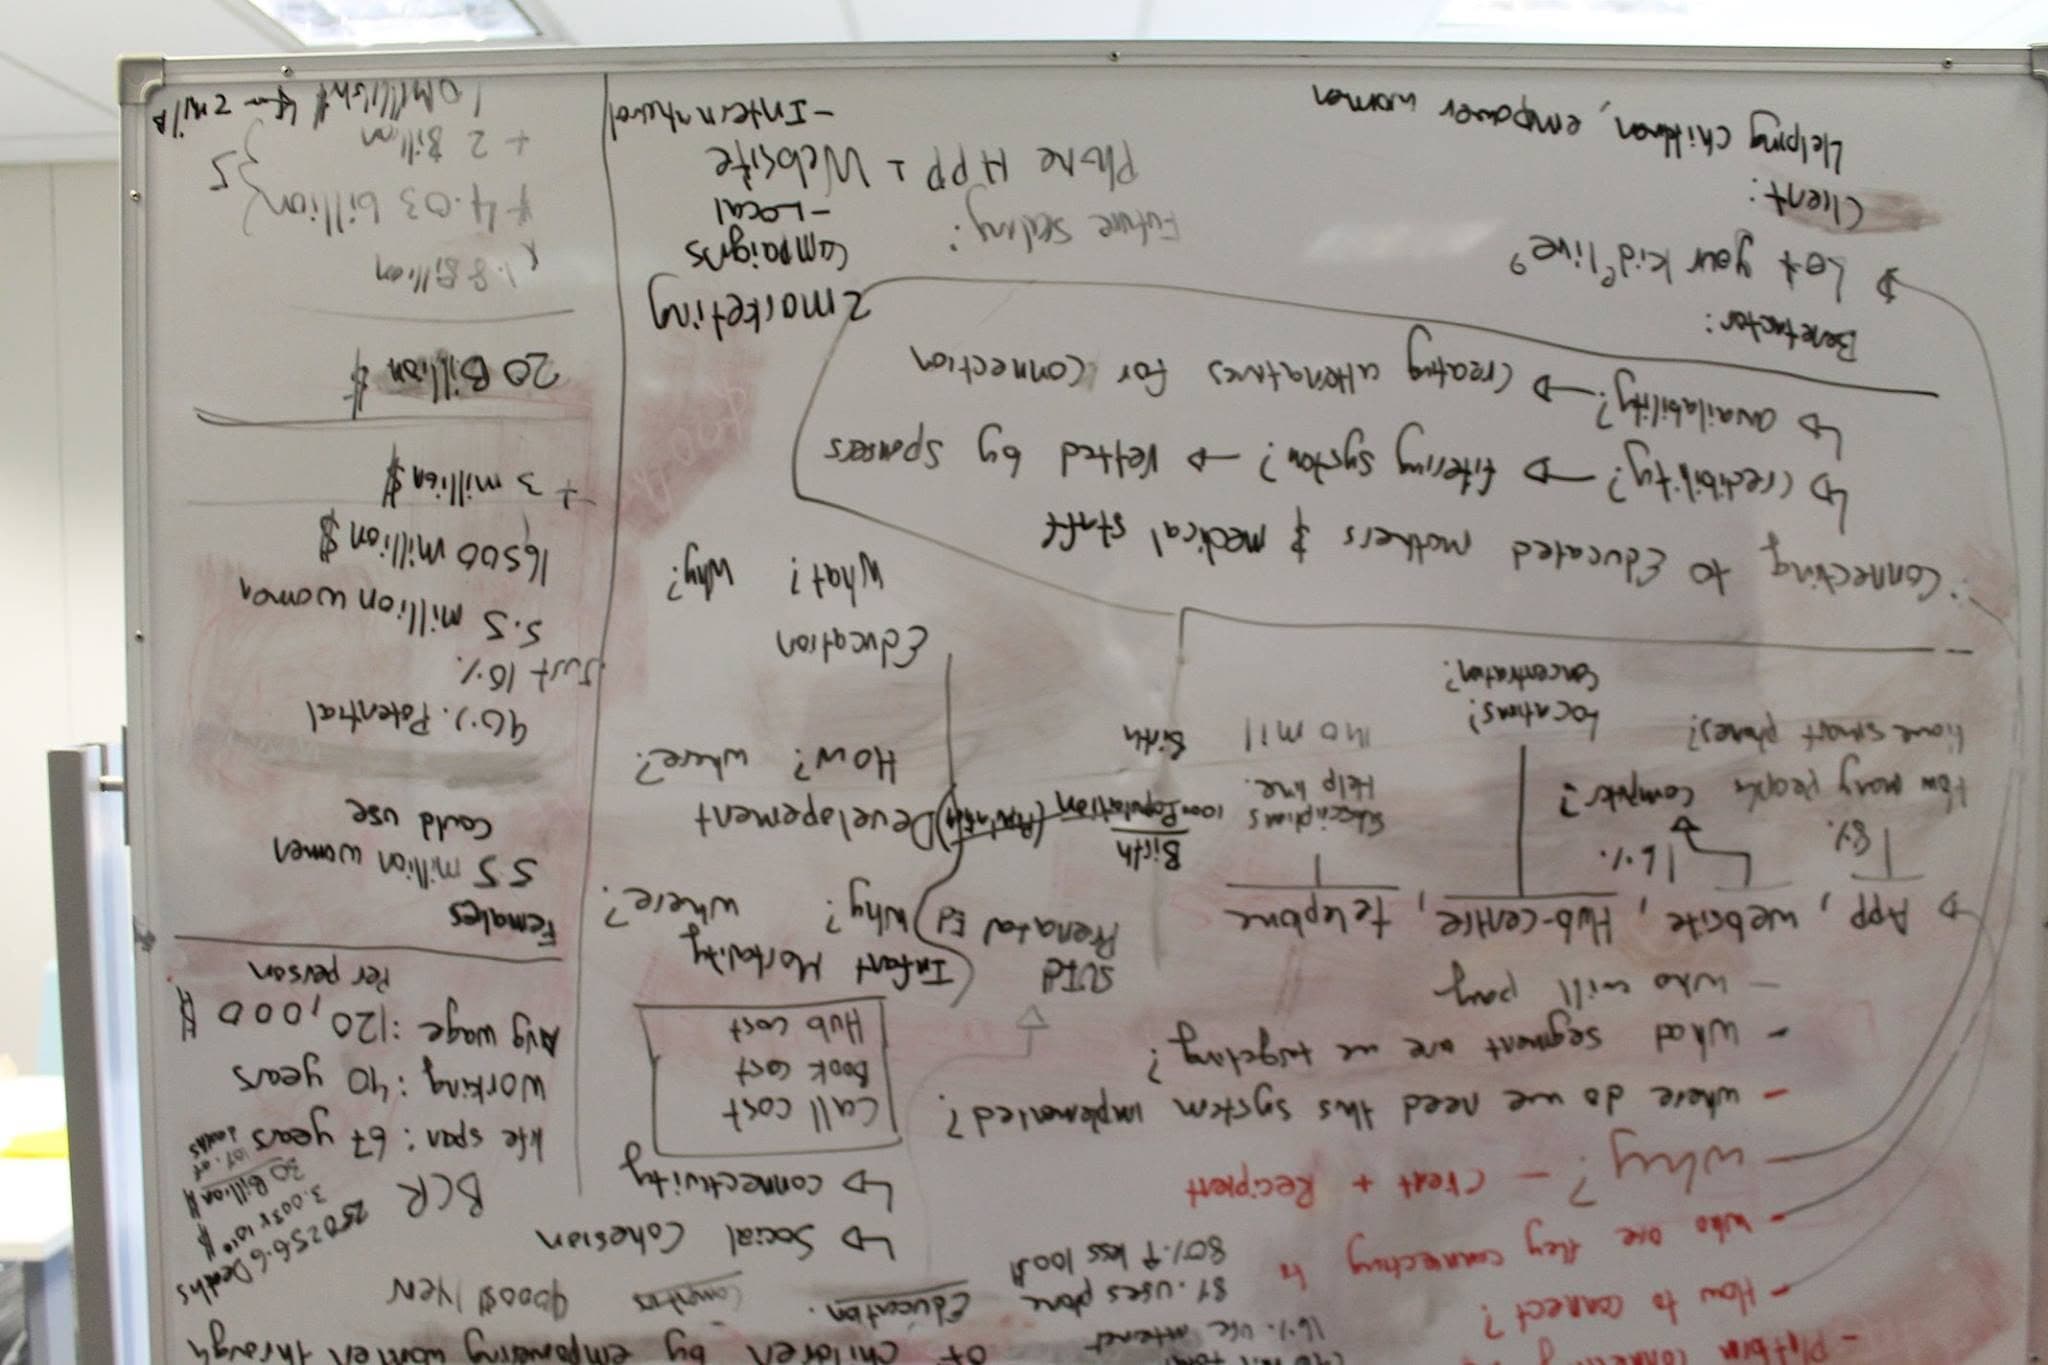 - Platform
- How to connect?
- Who are they connecting to
- Why? - Client + Recipient
- where do we need this system implemented?
- What segment are we targeting?
- who will pay
App, website, Hub-centre, telephone
8%
16%
How many people
have smart phones?
Computer?
Locations?
Concentration?
Subscriptions
Help line.
140 mil
Birth
100m Population
Birth
: Connecting to Educated mothers & medical staff
↳ credibility? → filtering system? → vetted by sponsers
↳ availability? → creating alternatives for connection
Benefactor:
→ Let your kid live?
Client:
Helping children, empower women
Future scaling:
Phone App + Website
16% use internet
8% uses phone
80% less 100$
of children by empowering women through
Education.
4000$/Year
↳ Social Cohesion
↳ connectivity
Call cost
Book cost
Hub cost
SUID
Prenatal Ed
Infant Mortality
Why? where?
Developement
How? where?
Education
What? Why?
2 marketing
Campaigns
- Local
- International
BCR
250256.6 Deaths
30 Billion $
life span: 67 years
working: 40 years
Avg wage: 120,000 $
Per person
Females
55 million women
could use
90% Potential
Just 10%
5.5 million women
16500 million $
+ 3 million $
20 Billion $
1.8 Billion
+ 4.03 billion
+ 2 Billion
} 5